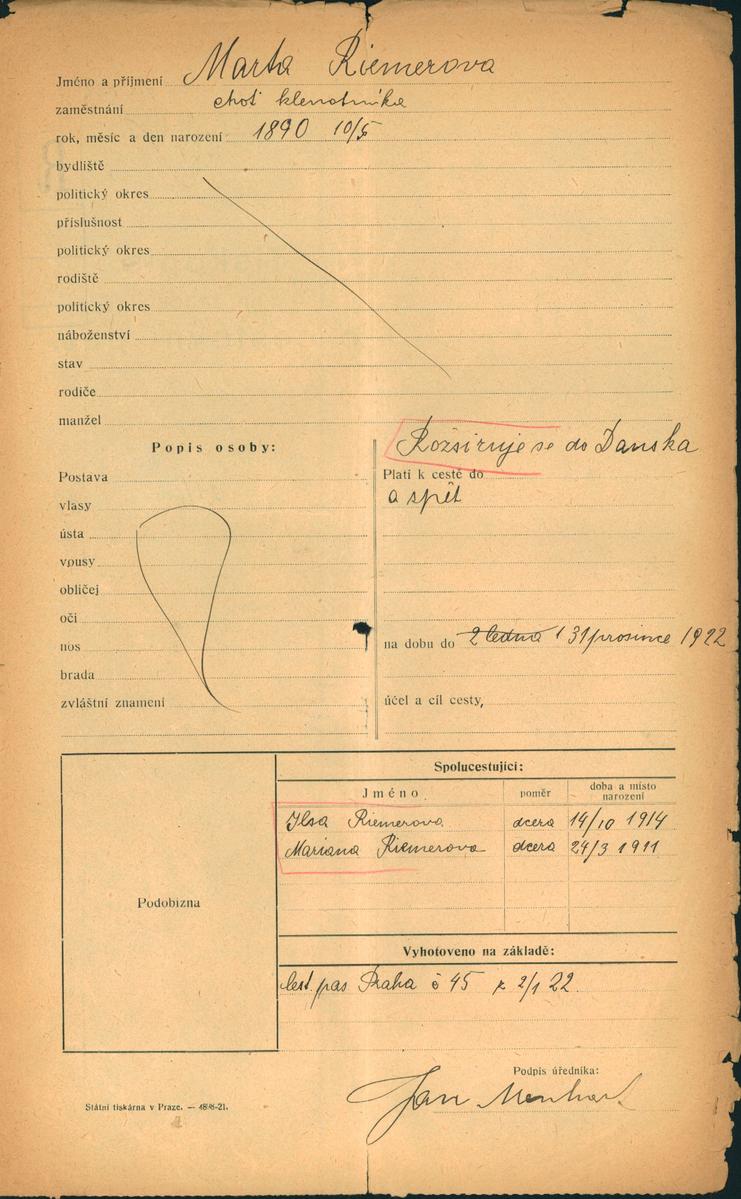 Jméno a příjmení Marta Riemerova
zaměstnání choť klenotníka
rok, měsíc a den narození 1890 10/5
bydliště
politický okres
příslušnost
politický okres
rodiště
politický okres
náboženství
stav
rodiče
manžel
Popis osoby:
Postava
vlasy
ústa
vousy
obličej
oči
nos
brada
zvláštní znamení
Rozšiřuje se do Danska
Platí k cestě do
a zpět
na dobu do 2 ledna 31 prosince 1922
účel a cíl cesty,
Podobizna
Spolucestující:
Jméno poměr doba a místo narození
Ilsa Riemerova dcera 14/10 1914
Mariana Riemerova dcera 24/3 1911
Vyhotoveno na základě:
cest. pas Praha č 45 z 2/1 22.
Podpis úředníka:
Jan
Státní tiskárna v Praze. —